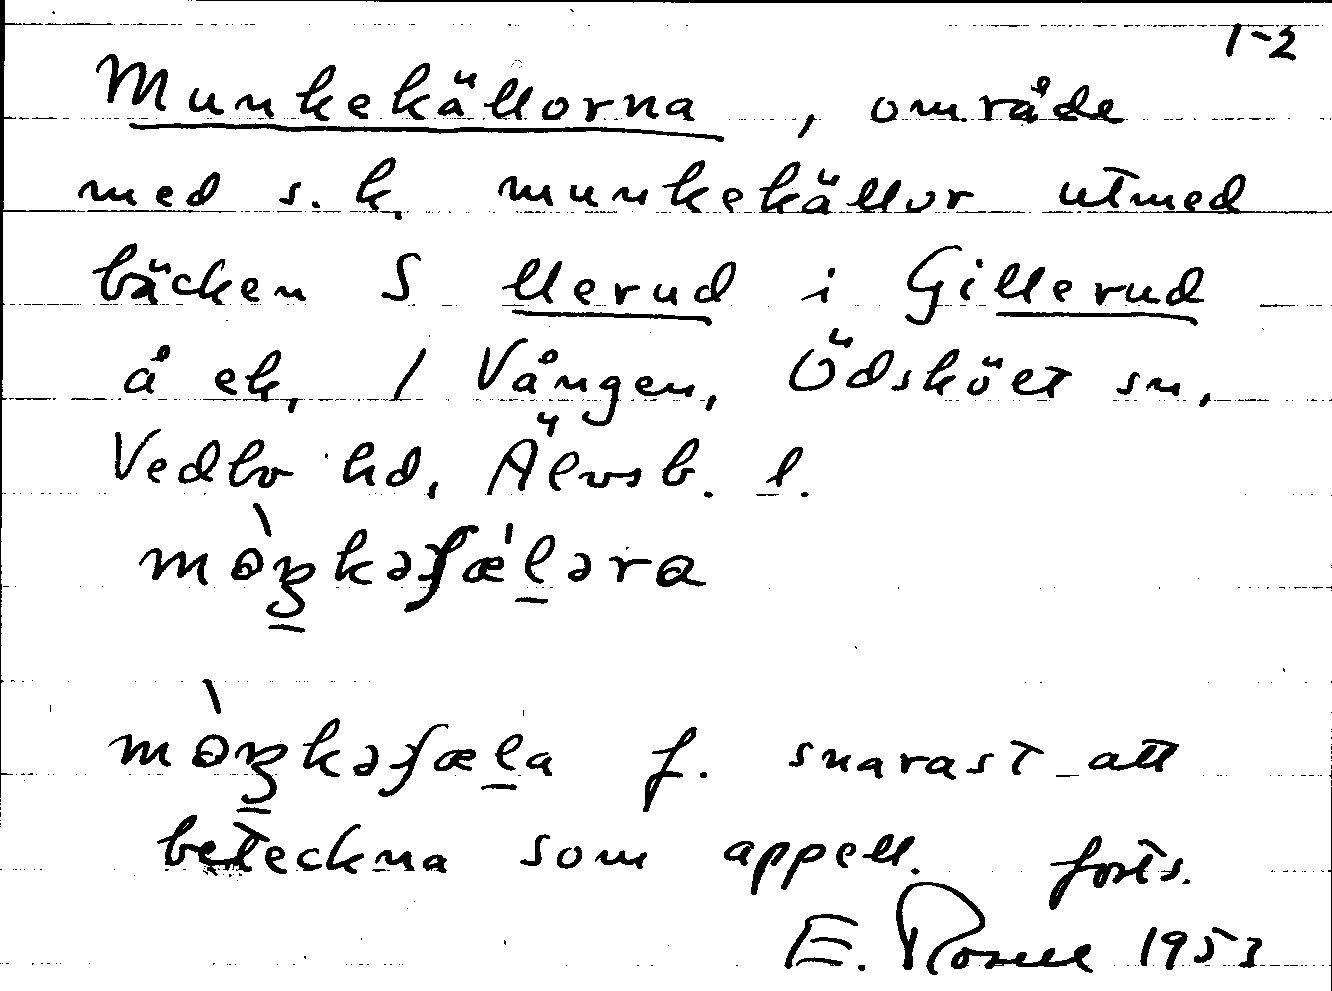 1-2
Munkekällorna, område
med s.k. munkekällor utmed
bäcken S llerud i Gillerud
å ek. 1 Vången, Ödsköet sn,
Vedbo hd, Älvsb. l.
f. snarast att
beteckna som appell. forts.
E. Rosell 1953